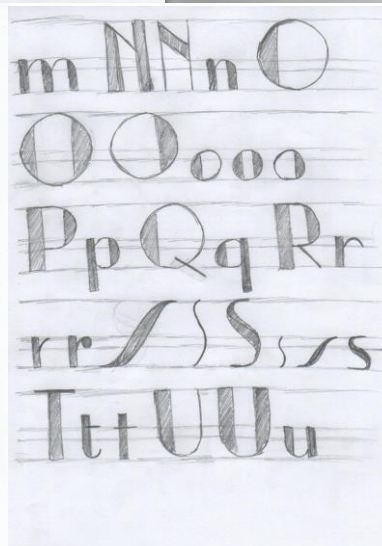 m N N n O
O O o o o
P p Q q R r
r r S S S s s s
T t t U U u